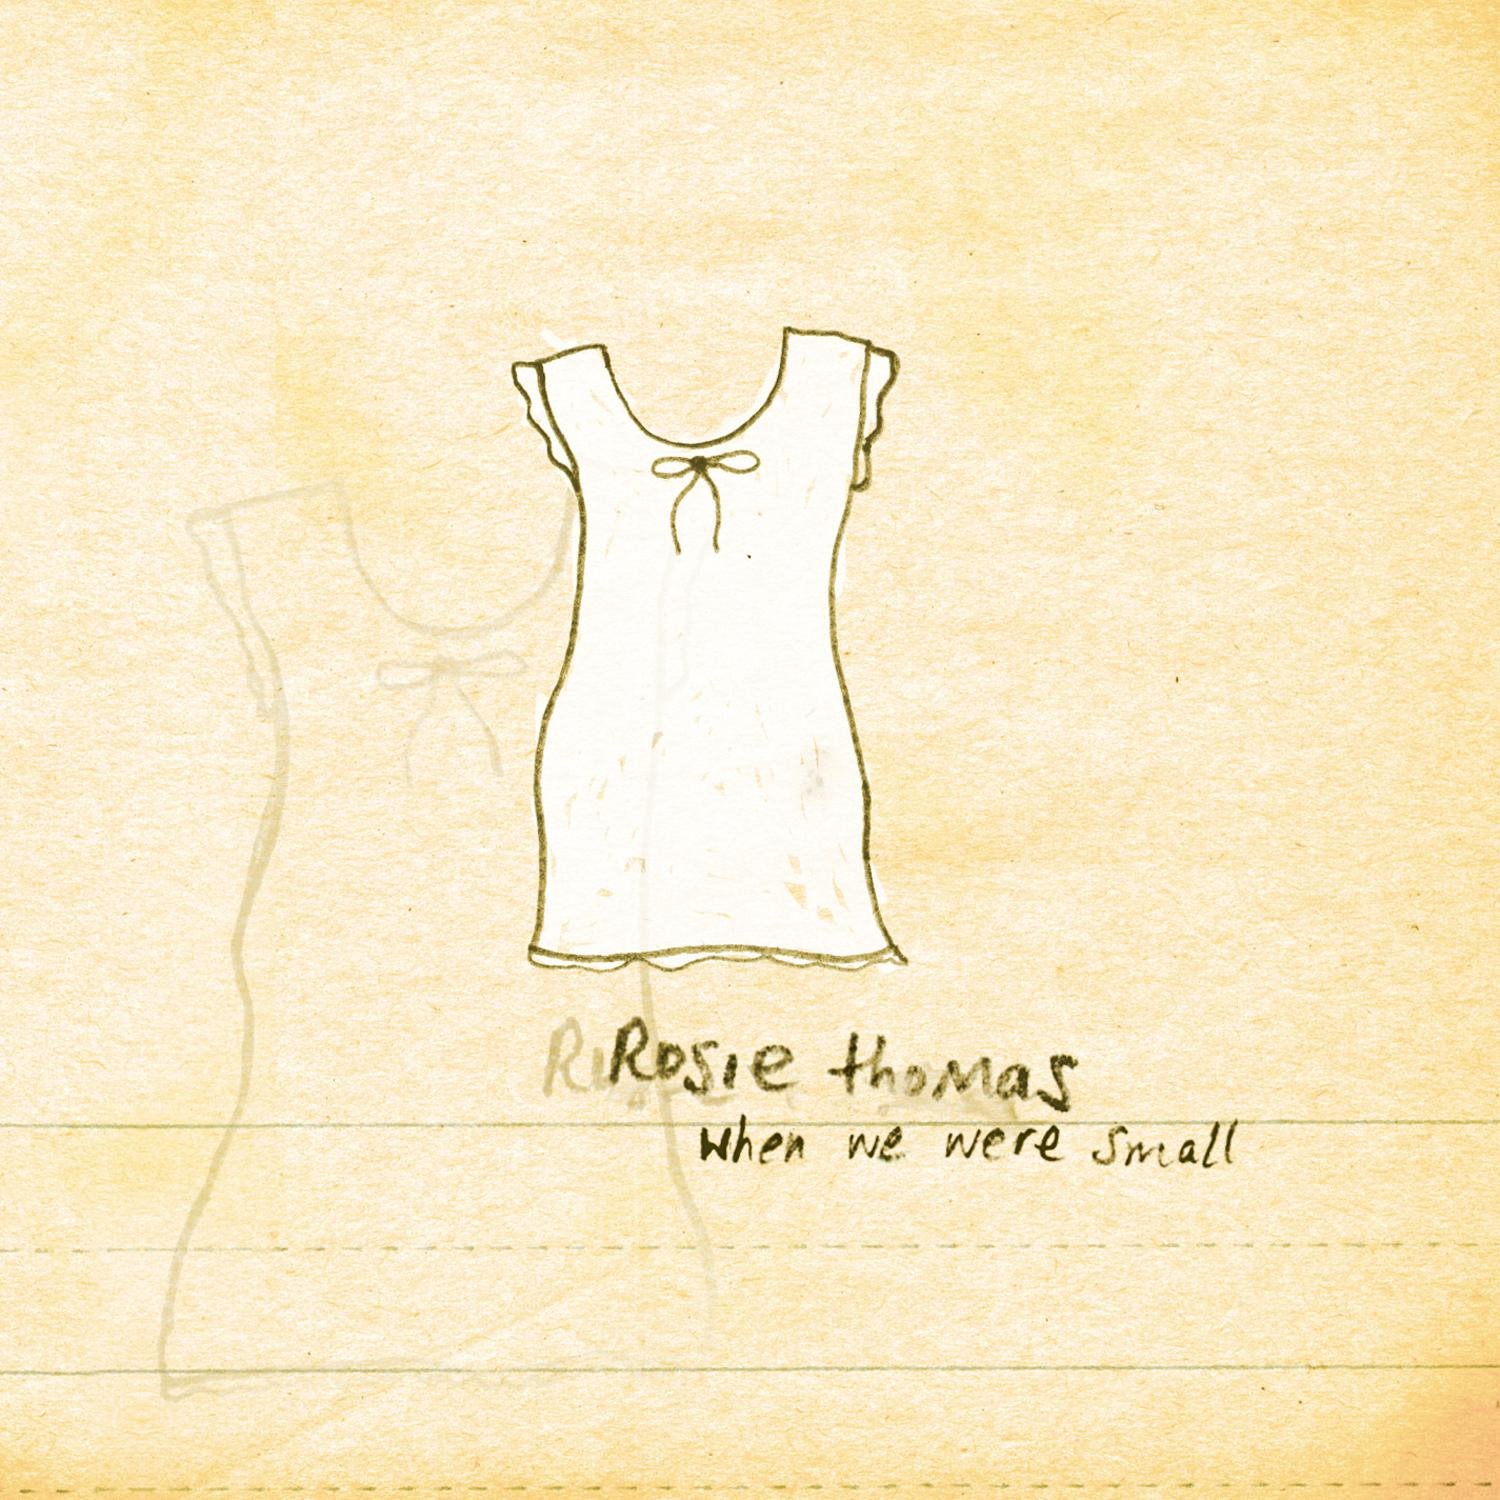 Rosie thomas
when we were small